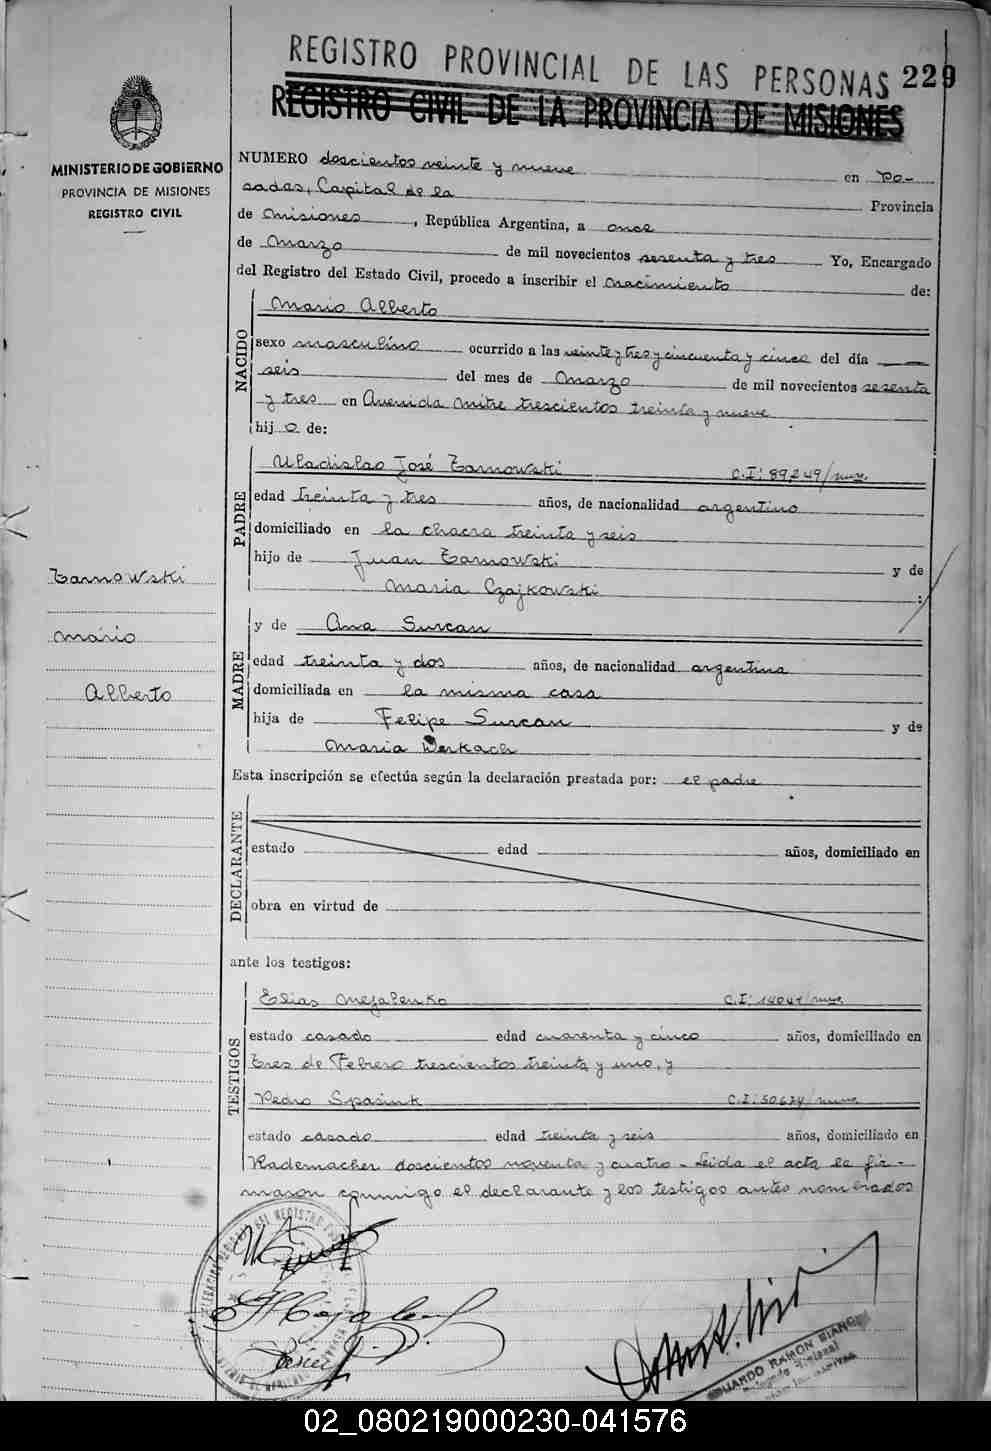 REGISTRO PROVINCIAL DE LAS PERSONAS 229
REGISTRO CIVIL DE LA PROVINCIA DE MISIONES
MINISTERIO DE GOBIERNO
PROVINCIA DE MISIONES
REGISTRO CIVIL
NUMERO doscientos veinte y nueve en Po-
sadas, Capital de la Provincia
de Misiones, República Argentina, a once
de Marzo de mil novecientos sesenta y tres Yo, Encargado
del Registro del Estado Civil, procedo a inscribir el nacimiento de:
NACIDO
Mario Alberto
sexo masculino ocurrido a las veinte y tres y cincuenta y cinco del día
seis del mes de Marzo de mil novecientos sesenta
y tres en Avenida Mitre trescientos treinta y nueve
hijo de:
PADRE
Uladislao José Tarnowski C.I: 89249/mnes.
edad treinta y tres años, de nacionalidad argentino
domiciliado en la chacra treinta y seis
hijo de Juan Tarnowski y de
Maria Czajkowski :
Tarnowski
Mario
Alberto
MADRE
y de Ana Surcan
edad treinta y dos años, de nacionalidad argentina
domiciliada en la misma casa
hija de Felipe Surcan y de
Maria Derkach
Esta inscripción se efectúa según la declaración prestada por: el padre
DECLARANTE
estado edad años, domiciliado en
obra en virtud de
ante los testigos:
TESTIGOS
Elias Mejalenko C.I: 14047/mnes.
estado casado edad cuarenta y cinco años, domiciliado en
Tres de Febrero trescientos treinta y uno, y
Pedro Spasiuk C.I: 50674/mnes.
estado casado edad treinta y seis años, domiciliado en
Rademacher doscientos noventa y cuatro - Leida el acta la fir-
maron conmigo el declarante y los testigos antes nombrados
EDUARDO RAMON BIANCHI
Delegado Regional
02_080219000230-041576